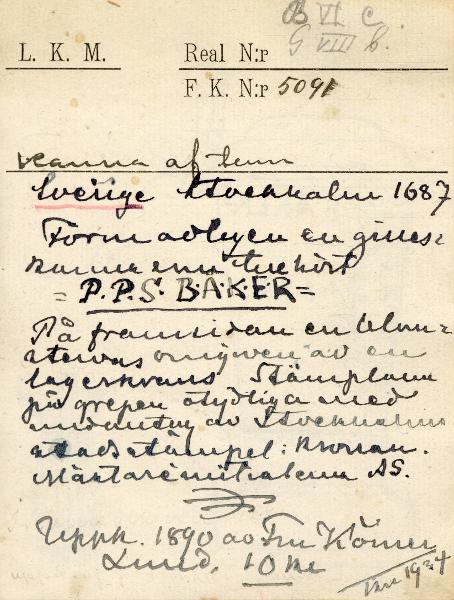 B VI c.
G VIII b.
L. K. M. Real N:r
F. K. N:r 5091
Kanna af tenn
Sverige Stockholm 1687
Form avlegen en gilles=
kanna som tillhört
= P.P.S. BÄKER =
På framsidan en blom=
stervas omgiven av en
lagerkrans Stämplarna
på grepen otydliga med
undantag av Stockholms
stadsstämpel: kronan.
Mästareinitialerna AS.
Uppk. 1890 av Fru Körner
Lund. 10 kr
1924